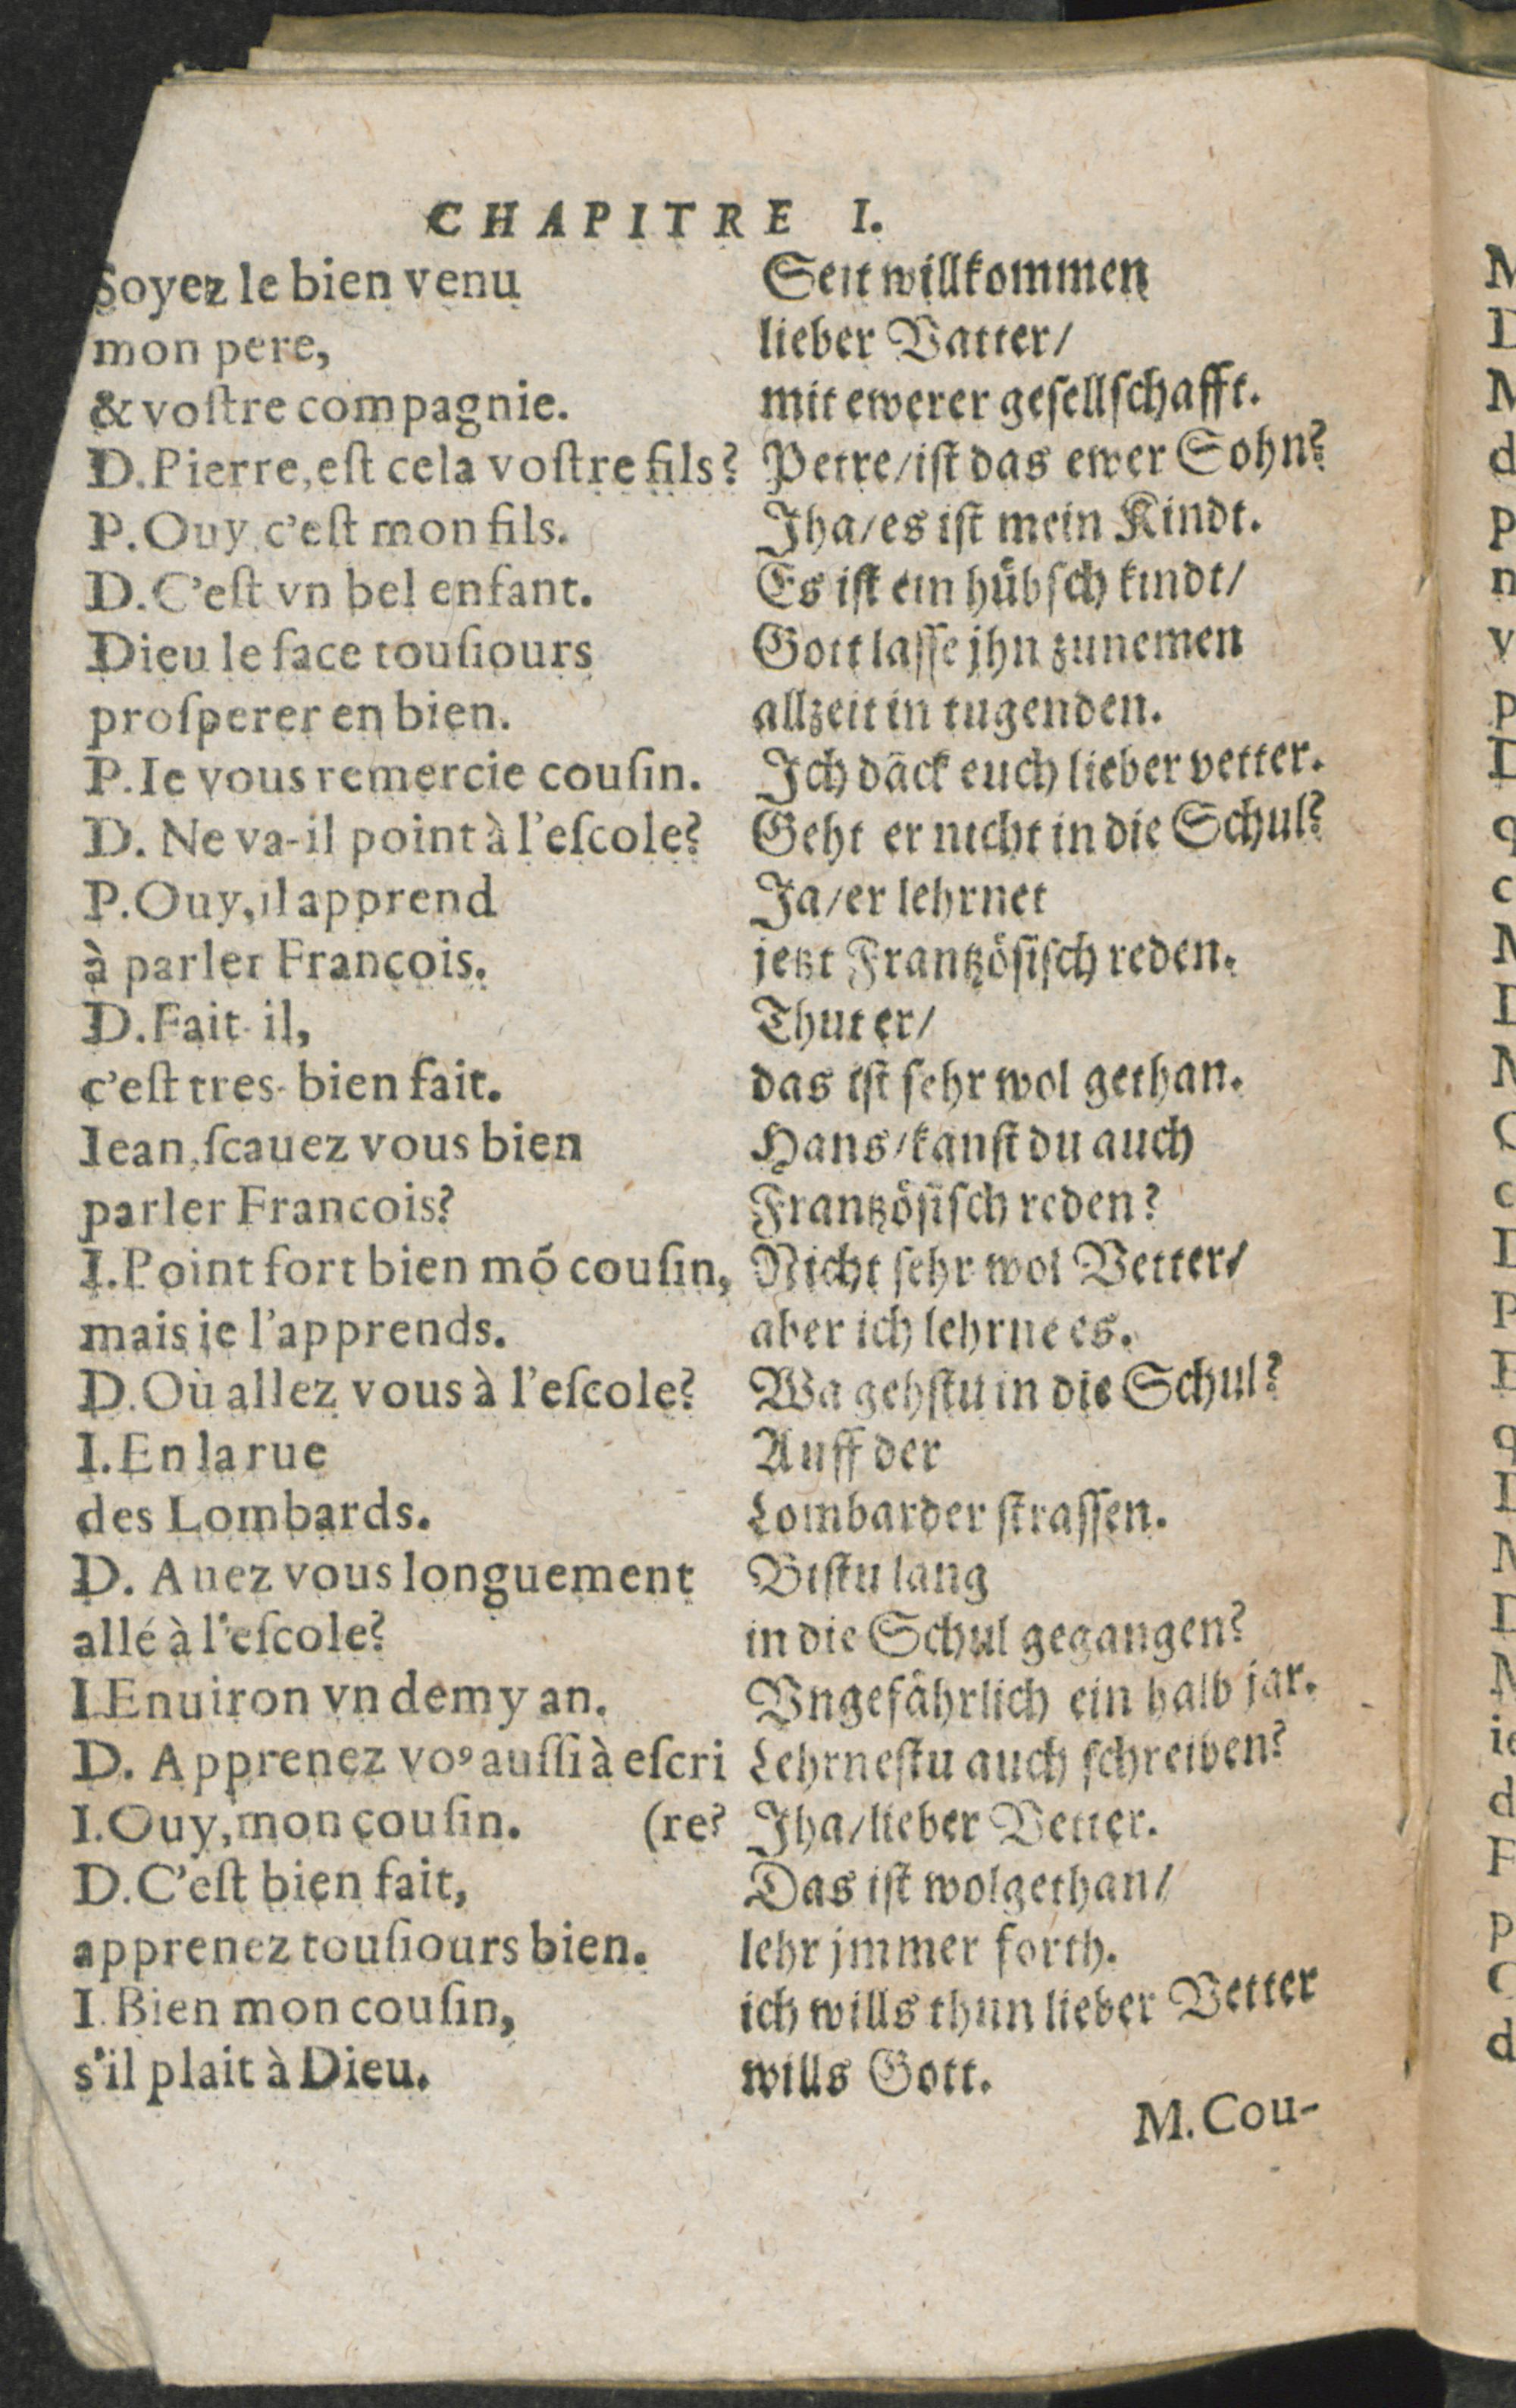 CHAPITRE I.
Soyez le bien venu
mon pere,
& voſtre compagnie.
D. Pierre, eſt cela voſtre fils?
P. Ouy, c'eſt mon fils.
D. C'eſt vn bel enfant.
Dieu le face touſiours
proſperer en bien.
P. Ie vous remercie couſin.
D. Ne va-il point à l'eſcole?
P. Ouy, il apprend
à parler Francois.
D. Fait-il,
c'eſt tres-bien fait.
Iean, ſcauez vous bien
parler Francois?
I. Point fort bien mõ couſin,
mais ie l'apprends.
D. Où allez vous à l'eſcole?
I. En la rue
des Lombards.
D. Auez vous longuement
allé à l'eſcole?
I. Enuiron vn demy an.
D. Apprenez voꝰ auſſi à eſcri
I. Ouy, mon couſin. (re?
D. C'eſt bien fait,
apprenez touſiours bien.
I. Bien mon couſin,
s'il plait à Dieu.
Seit willkommen
lieber Vatter/
mit ewerer geſellſchafft.
Petre/ iſt das ewer Sohn?
Jha/ es iſt mein Kindt.
Es iſt ein hübſch kindt/
Gott laſſe jhn zunemen
allzeit in tugenden.
Ich dãck euch lieber vetter.
Geht er nicht in die Schul?
Ja/ er lehrnet
jetzt Frantzöſiſch reden.
Thut er/
das iſt ſehr wol gethan.
Hans/ kanſt du auch
Frantzöſiſch reden?
Nicht ſehr wol Vetter/
aber ich lehrne es.
Wa gehſtu in die Schul?
Auff der
Lombarder ſtraſſen.
Biſtu lang
in die Schul gegangen?
Vngefährlich ein halb jar.
Lehrneſtu auch ſchreiben?
Jha/ lieber Vetter.
Das iſt wolgethan/
lehr jmmer forth.
ich wills thun lieber Vetter
wills Gott.
M. Cou-